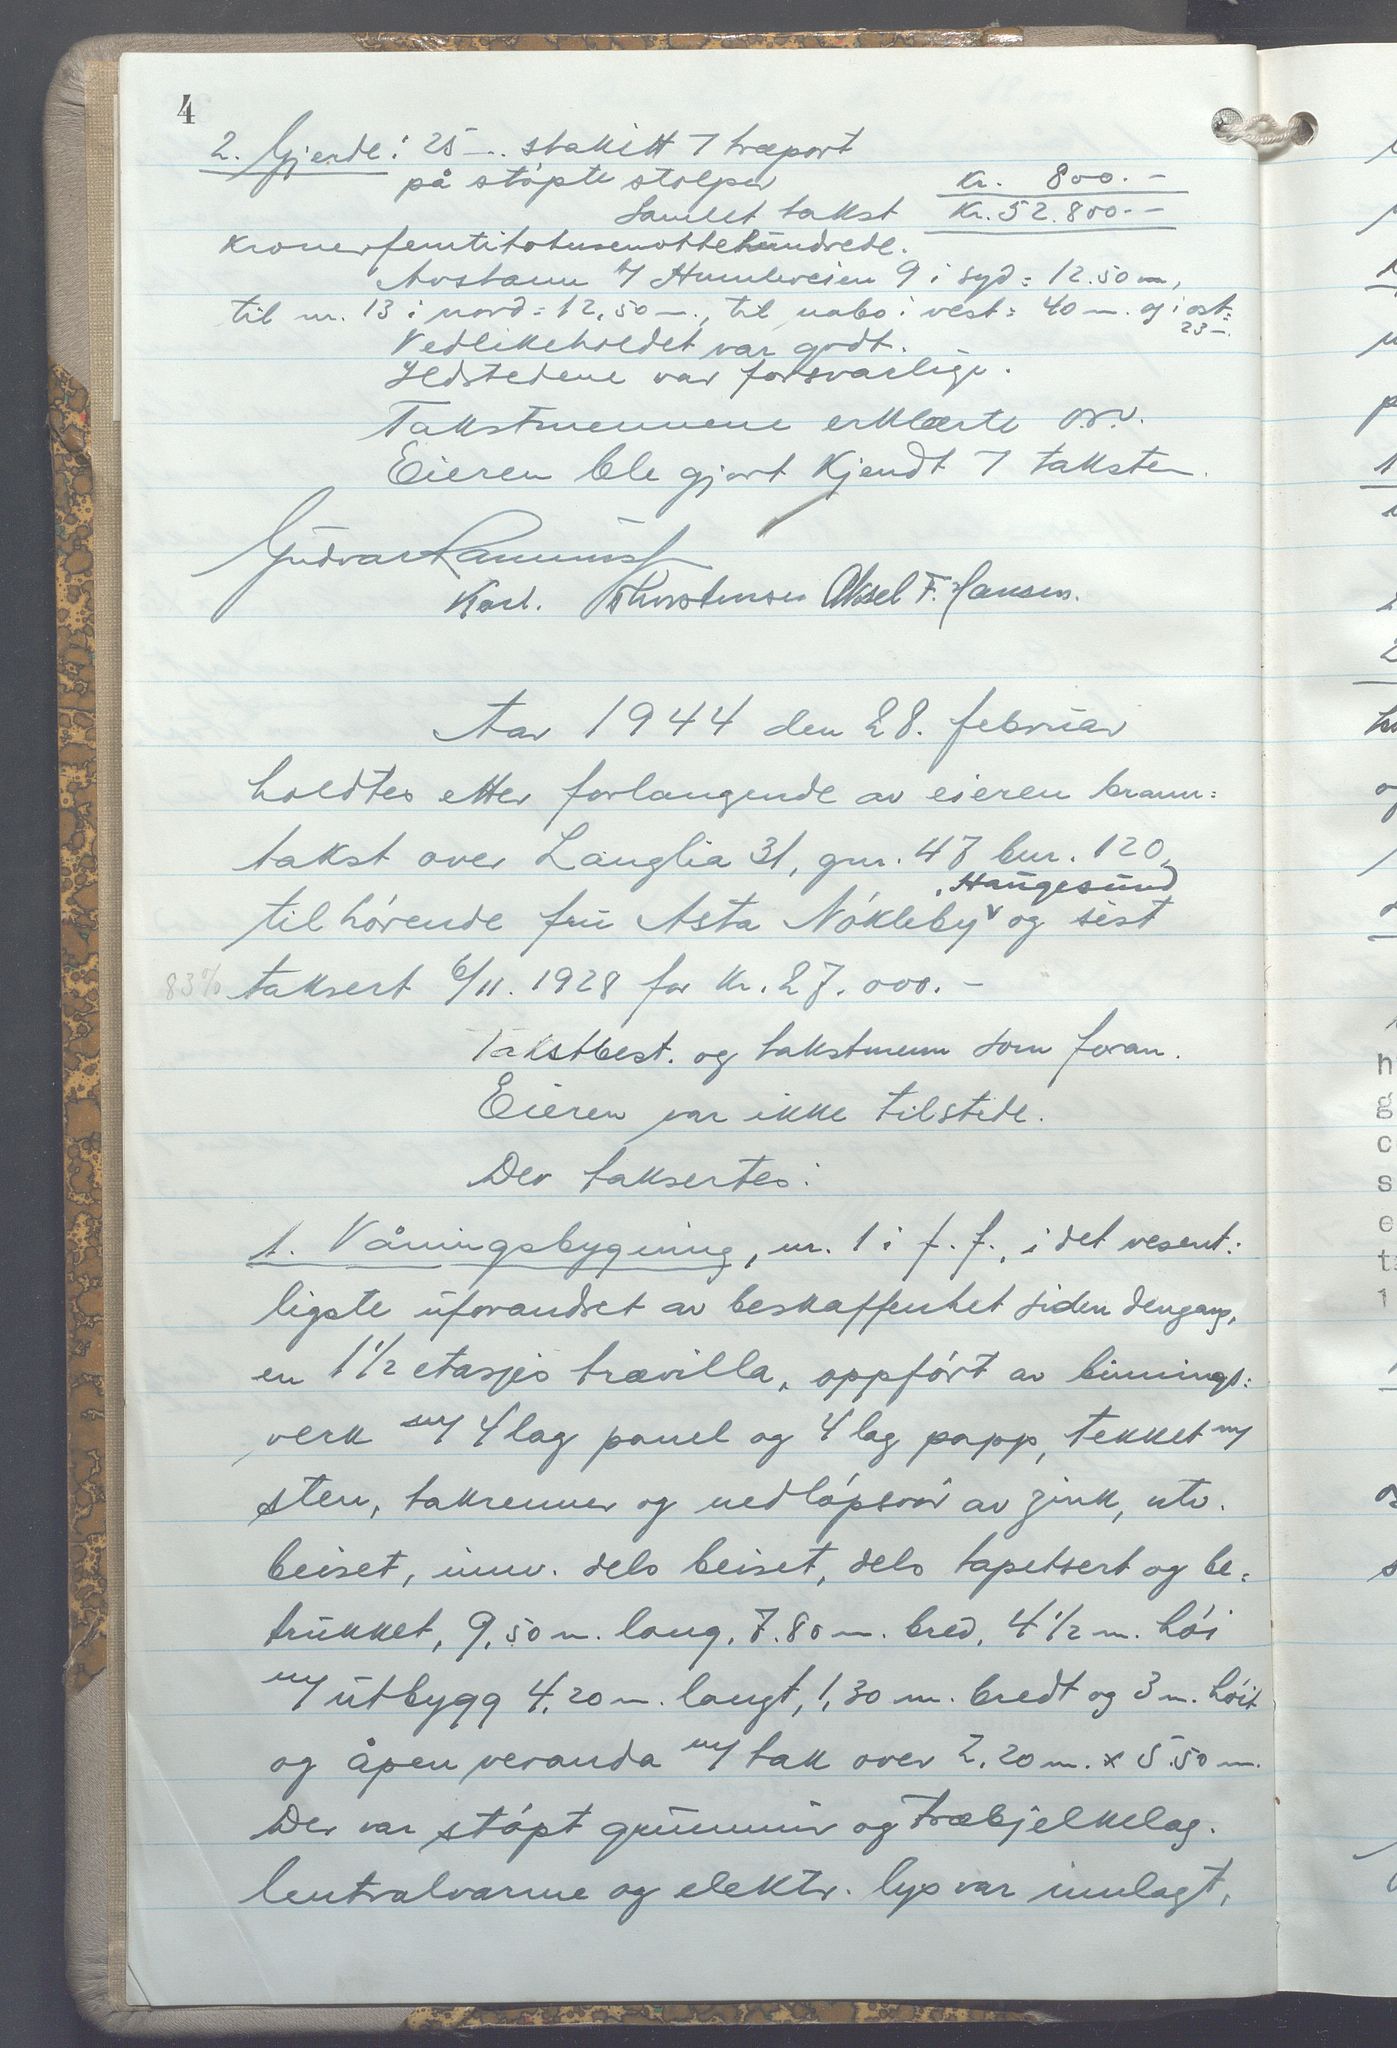 4
2. Gjerde: 25 m. stakitt m/ træport
på støpte stolper Kr. 800.-
Samlet takst Kr. 52.800.-
Kronerfemtitotusenottehundrede.
Avstann t/ Humleveien 9 i syd = 12.50 m,
til nr. 13 i nord = 12,50 m., til nabo i vest = 40 m. og i øst =
23 m.
Vedlikeholdet var godt.
Ildstedene var forsvarlige.
Takstmennene erklærte o.s.v.
Eieren ble gjort kjendt m/ taksten.
Gudvar
Karl. Thorstensen Aksel F. Hansen.
Aar 1944 den 28. februar
holdtes etter forlangende av eieren brann=
takst over Langlia 31, gnr. 47 bnr. 120,
, Haugesund
tilhørende fru Asta Nøkleby v og sist
83% taksert 6/11. 1928 for kr. 27.000.-
Takstbest. og takstmenn som foran.
Eieren var ikke tilstede.
Der taksertes:
1. Våningsbygning, nr. 1 i f. f., i det vesent=
ligste uforandret av beskaffenhet siden dengang,
en 1 1/2 etasjes trævilla, oppført av binnings=
verk m/ 4 lag panel og 4 lag papp, tekket m/
sten, takrenner og nedløpsrør av zink, utv.
beiset, innv. dels beiset, dels tapetsert og be=
trukket, 9,50 m. lang, 7.80 m. bred, 4 1/2 m. høi
m/ utbygg 4,20 m. langt, 1,30 m. bredt og 3 m. høit
og åpen veranda m/ tak over 2.20 m. x 5.50 m.
Der var støpt grunnmur og træbjelkelag.
Centralvarme og elektr. lys var innlagt,